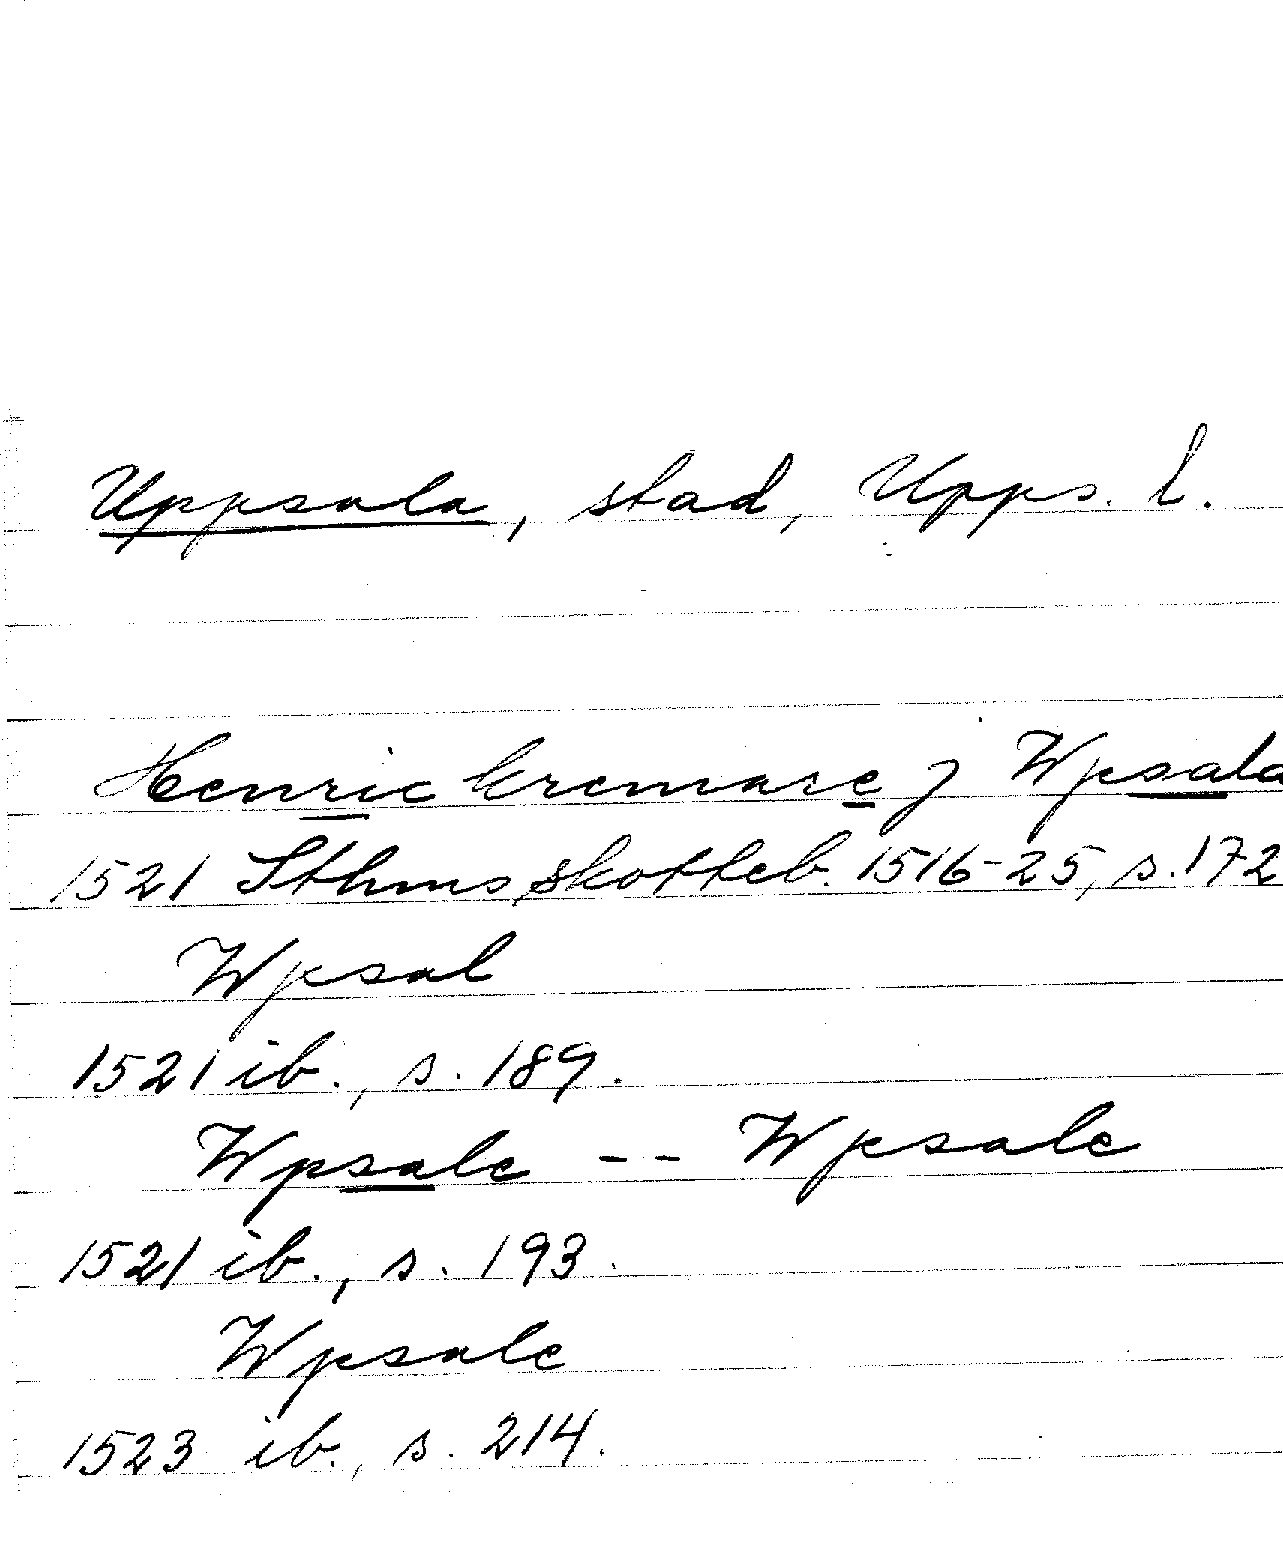 Uppsala, stad, Upps. l.
Henric kremare j Wpsala
1521 Sthms skotteb. 1516-25, s. 172
Wpsal
1521 ib., s. 189.
Wpsale -- Wpsale
1521 ib., s. 193.
Wpsale
1523 ib., s. 214.